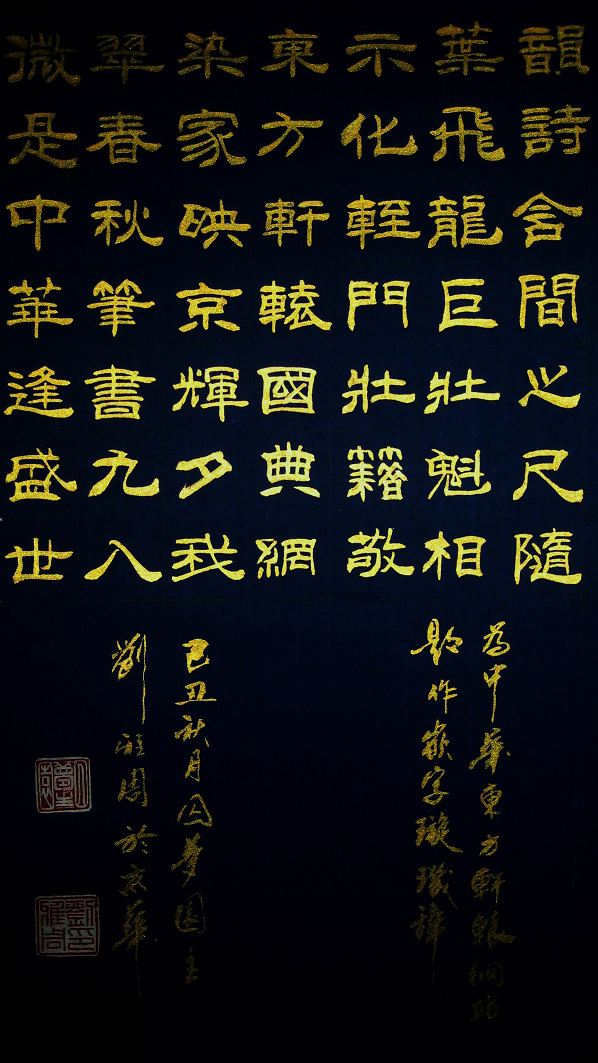 韻詩含間心尺隨
葉飛龍巨壯魁相
示化輕門壯籍敬
東方軒轅國典網
染家映京輝夕我
翠春秋筆書九八
微是中華逢盛世
為中華東方軒轅網站
題作嵌字璇璣詩
己丑秋月夢園主
劉雅周於京華
劉雅周印